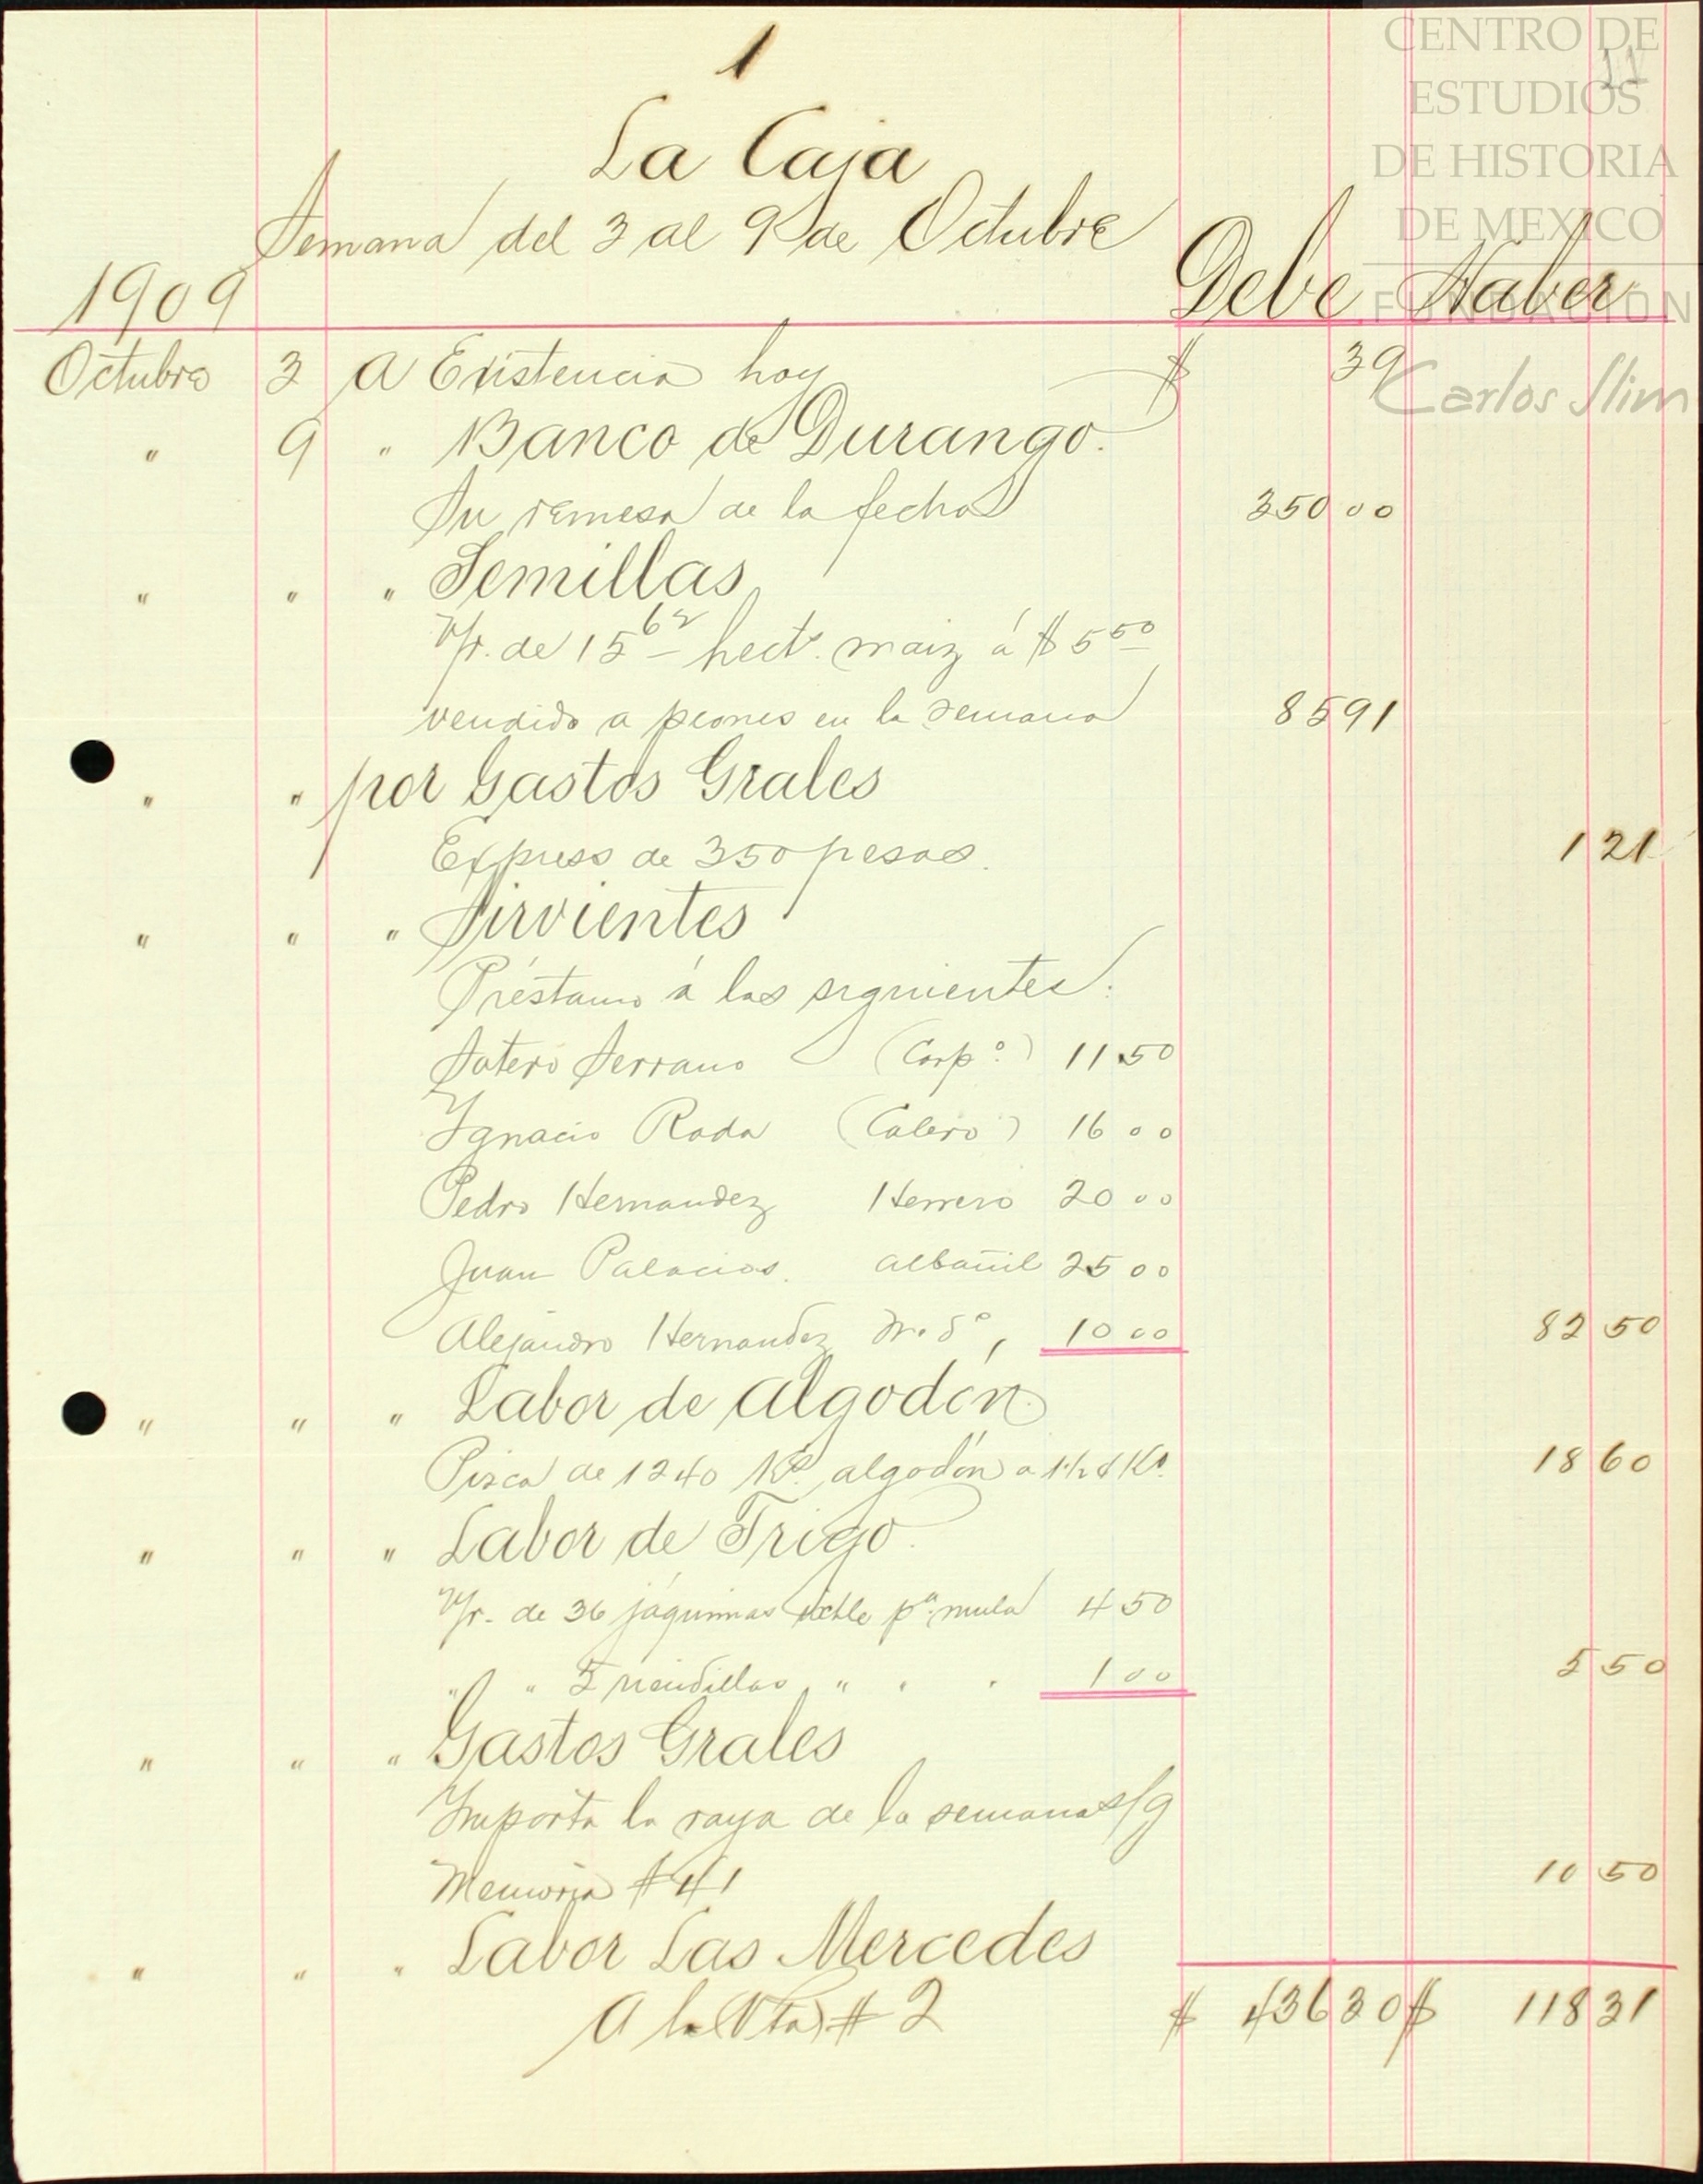 1
11
CENTRO DE
ESTUDIOS
DE HISTORIA
DE MEXICO
FUNDACIÓN
Carlos Slim
La Caja
Semana del 3 al 9 de Octubre
1909 Debe Haber
Octubre 3 A Existencia hoy $ 39
" 9 " Banco de Durango.
Su remesa de la fecha 350 00
" " " Semillas
Vr. de 15 62 hect. maiz á $ 5 50
vendido a peones en la semana 85 91
" " por Gastos Grales
Express de 350 pesos. 1 21
" " " Sirvientes
Préstamo á los siguientes:
Sotero Serrano (Carpo.) 11 50
Ygnacio Roda (Calero) 16 00
Pedro Hernandez Herrero 20 00
Juan Palacios. albañil 25 00
Alejandro Hernandez 10 00 82 50
" " " Labor de Algodón.
Pisca de 1240 Ks. algodón a 1 1/2 ¢ Ko. 18 60
" " " Labor de Trigo.
Vr. de 36 jáquimas ixtle pa. mula 4 50
" " 5 riendillas " " " 1 00 5 50
" " " Gastos Grales
Importa la raya de la semana s/g
Memoria # 41 10 50
" " " Labor Las Mercedes
A la Vta # 2 $ 436 30 $ 118 31